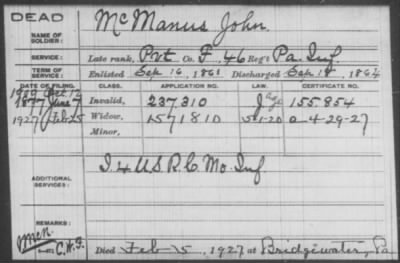 DEAD
McManus John.
NAME OF SOLDIER:
SERVICE: Late rank, Pvt Co. F, 46 Reg't Pa. Inf.
TERM OF SERVICE: Enlisted Sep 16, 1861 Discharged Sep 18, 1864
DATE OF FILING. CLASS. APPLICATION NO. LAW. CERTIFICATE NO.
1909 Oct 12
1877 June 7 Invalid, 237310 155.854
1927 Feb 25 Widow, 1571810 5-1-20 4-29-27
Minor,
I 4 U.S.R.C. Mo. Inf
ADDITIONAL SERVICES:
REMARKS:
Died Feb 15, 1927 at Bridgewater, Pa